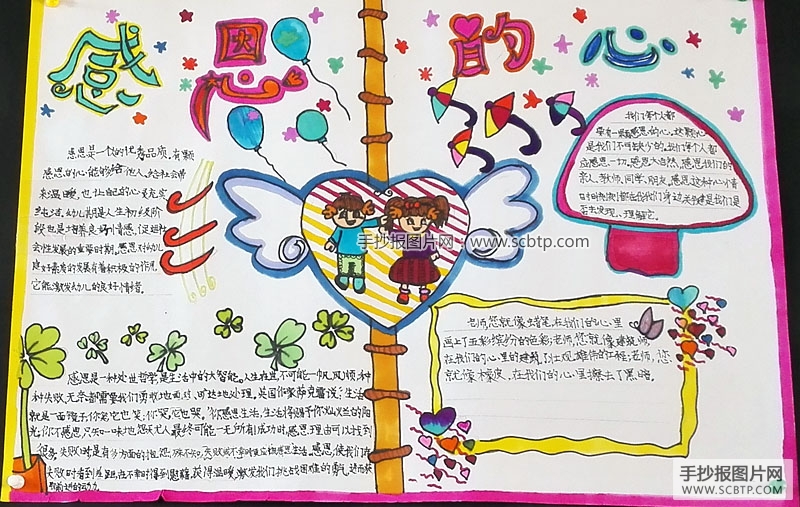 感恩的心
感恩是一个人的优秀品质。有颗
感恩的心，能够给他人、给社会带
来温暖，也让自己的心灵充实
与生活。幼儿期是人生初始阶
段也是培养良好情感，促进社
会性发展的重要时期。感恩对幼儿
良好素质的发展有着积极的作用
它能激发幼儿的良好情绪。
我们每个人都
带有一颗感恩的心。这颗心
是我们不可缺少的。我们每个人都
应感恩一切。感恩大自然，感恩我们的
亲人、教师、同学、朋友。感恩这种心情
时时刻刻都在我们身边关键是我们是
否去发现、理解它。
手抄报图片网：www.scbtp.com
老师，您就像蜡笔，在我们的心里
画上了五彩缤纷的色彩；老师，您就像建筑师，
在我们的心里的建筑了壮观、雄伟的工程；老师，您
就像橡皮，在我们的心里擦去了黑暗。
感恩是一种处世哲学，是生活中的大智能。人生在世，不可能一帆风顺，种
种失败、无奈都需要我们勇敢地面对、旷达地处理。英国作家萨克雷说：“生活
就是一面镜子，你笑，它也笑；你哭，它也哭。”你感恩生活，生活将赐予你灿烂的阳
光；你不感恩，只知一味地怨天尤人，最终可能一无所有！成功时，感恩理由可以找到
很多；失败时
失败时看到差距，在不幸时得到慰藉、获得温暖，激发我们挑战困难的勇气，进而获
取前进的动力。
手抄报图片网
WWW.SCBTP.COM